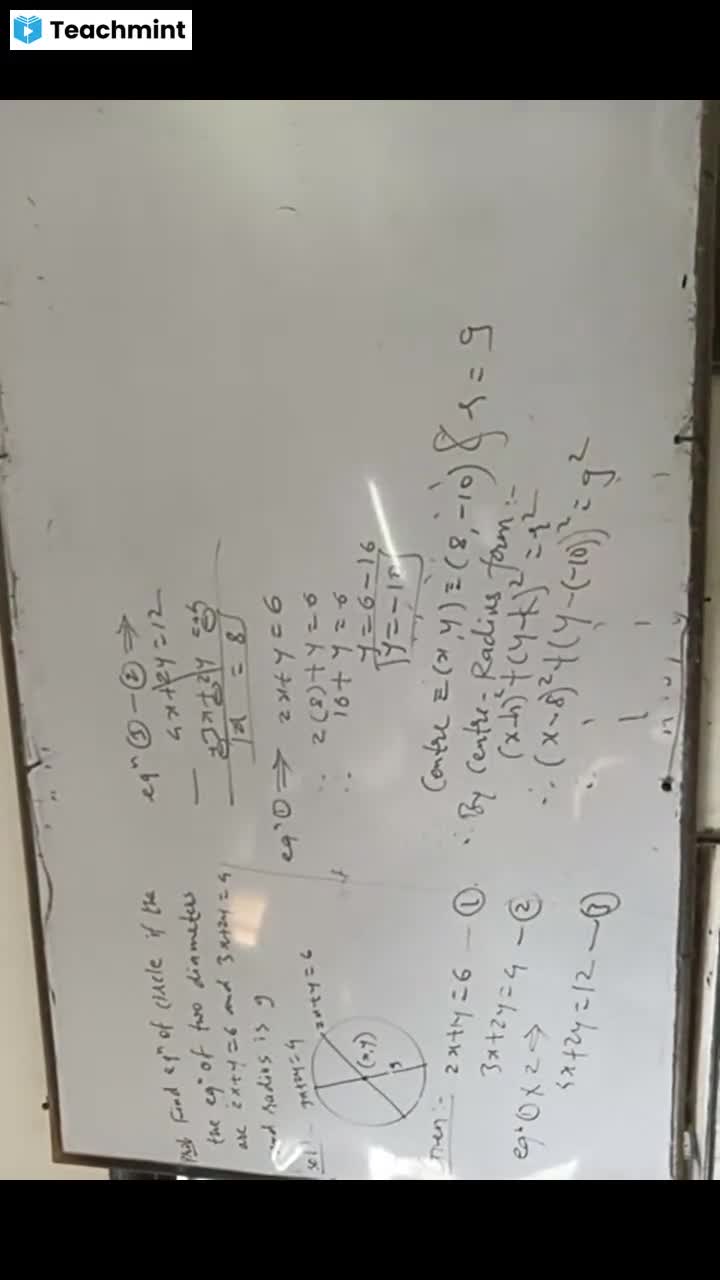 Teachmint
Prob Find eqⁿ of circle if the
the eqⁿ of two diameters
are 2x+y=6 and 3x+2y=4
and radius is 9
solⁿ:-
3x+2y=4
2x+y=6
(x,y)
9
2x+y=6 — ①
3x+2y=4 — ②
eqⁿ ① × 2 ⇒
4x+2y=12 — ③
eqⁿ ③ - ② ⇒
4x+2y=12
- 3x+2y=4
x = 8
eqⁿ ① ⇒ 2x+y=6
∴ 2(8)+y=6
∴ 16+y=6
y=6-16
y=-10
Centre ≡ (x,y)≡(8,-10) & r=9
∴ By Centre-Radius form:-
(x-h)²+(y-k)²=r²
∴ (x-8)²+(y-(-10))²=9²